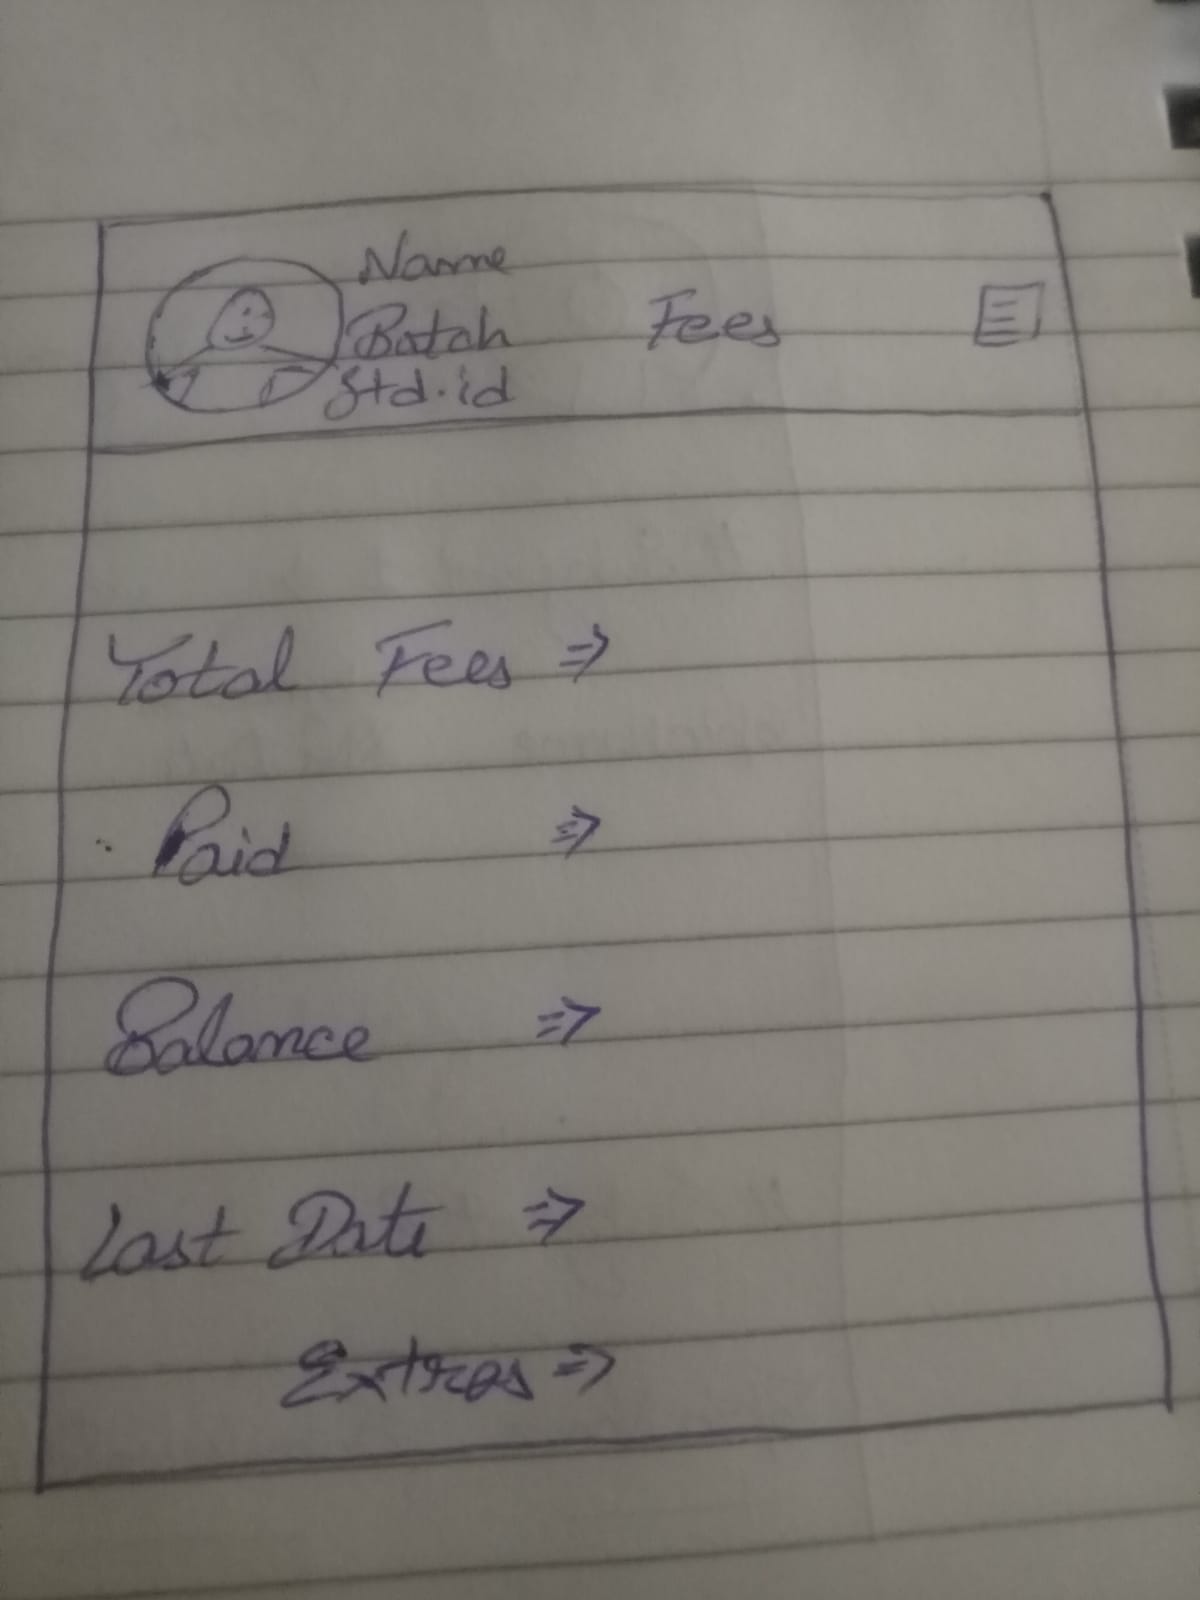 Name
Batch
Std.id
Fees
Total Fees ⇒
Paid ⇒
Balance ⇒
Last Date ⇒
Extras ⇒